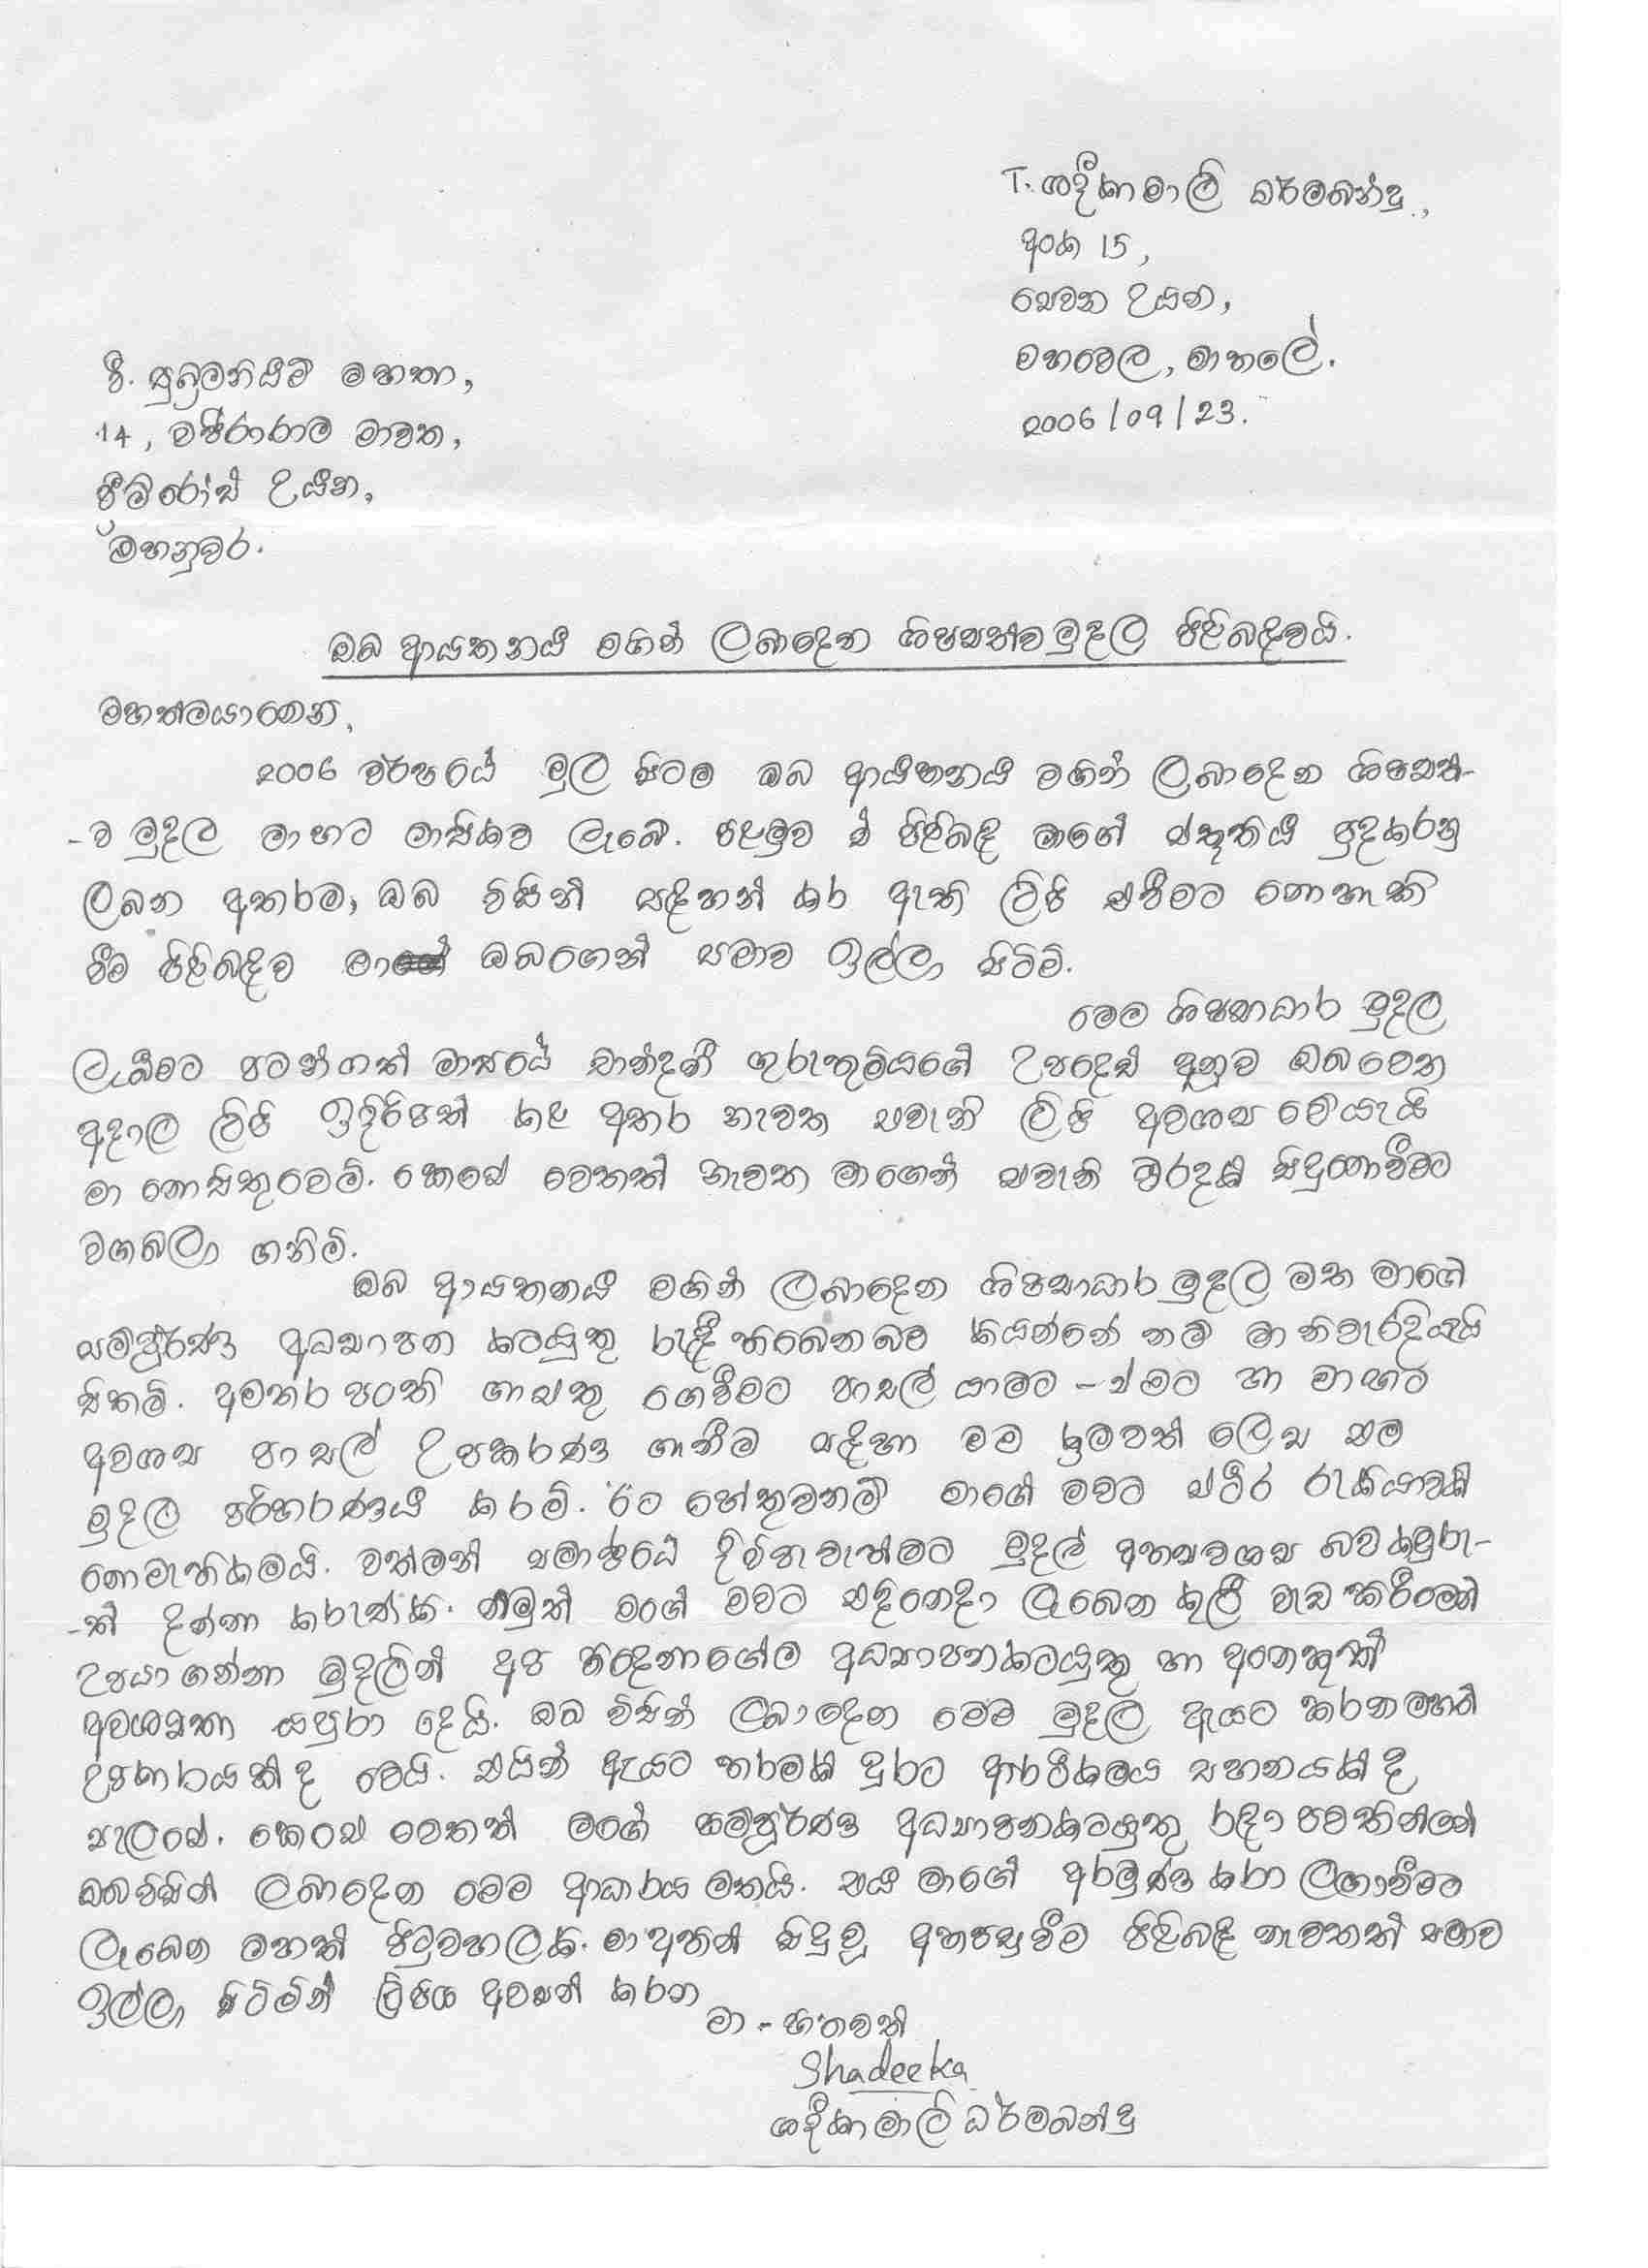 T. ශදීකා මාලි ධර්මබන්දු,
අංක 15,
සෙවන උයන,
මහවෙල, මාතලේ.
2006/09/23.
පී. සුබ්‍රමනියම් මහතා,
14, වජිරාරාම මාවත,
ප්‍රිම්රෝස් උයන,
මහනුවර.
ඔබ ආයතනය මගින් ලබාදෙන ශිෂ්‍යත්ව මුදල පිළිබඳවයි.
මහත්මයාණෙනි,
2006 වර්ෂයේ මුල සිටම ඔබ ආයතනය මගින් ලබාදෙන ශිෂ්‍යත්-
-ව මුදල මා හට මාසිකව ලැබේ. පළමුව ඒ පිළිබඳ මාගේ ස්තූතිය පුදකරනු
ලබන අතරම, ඔබ විසින් සඳහන් කර ඇති ලිපි එවීමට නොහැකි
වීම පිළිබඳව මා ඔබගෙන් සමාව ඉල්ලා සිටිමි.
මෙම ශිෂ්‍යාධාර මුදල
ලැබීමට පටන්ගත් මාසයේ චාන්දනී ගුරුතුමියගේ උපදෙස් අනුව ඔබ වෙත
අදාල ලිපි ඉදිරිපත් කළ අතර නැවත එවැනි ලිපි අවශ්‍ය වේයැයි
මා නොසිතුවෙමි. කෙසේ වෙතත් නැවත මාගෙන් එවැනි වරදක් සිදුනොවීමට
වගබලා ගනිමි.
ඔබ ආයතනය මගින් ලබාදෙන ශිෂ්‍යාධාර මුදල මත මාගේ
සම්පූර්ණ අධ්‍යාපන කටයුතු රැඳී තිබෙන බව කියන්නේ නම් මා නිවැරදියැයි
සිතමි. අමතර පංති ගාස්තු ගෙවීමට පාසල් යාමට - ඒමට හා මාහට
අවශ්‍ය පාසල් උපකරණ ගැනීම සඳහා මම ක්‍රමවත් ලෙස එම
මුදල පරිහරණය කරමි. ඊට හේතුවනම් මාගේ මවට ස්ථිර රැකියාවක්
නොමැතිකමයි. වත්මන් සමාජයේ දිවිපැවැත්මට මුදල් අත්‍යවශ්‍ය බව කවුරු-
-ත් දන්නා කරුණකි. නමුත් මගේ මවට එදිනෙදා ලැබෙන කුලී වැඩ කිරීමෙන්
උපයා ගන්නා මුදලින් අප තිදෙනාගේම අධ්‍යාපනකටයුතු හා අනෙකුත්
අවශ්‍යතා සපුරා දෙයි. ඔබ විසින් ලබාදෙන මෙම මුදල ඇයට කරන මහත්
උපකාරයක් ද වෙයි. එයින් ඇයට තරමක් දුරට ආර්ථිකමය සහනයක් ද
සැලසේ. කෙසේ වෙතත් මගේ සම්පූර්ණ අධ්‍යාපනකටයුතු රඳා පවතින්නේ
ඔබවිසින් ලබාදෙන මෙම ආධාරය මතයි. එය මාගේ අරමුණ කරා ලඟාවීමට
ලැබෙන මහත් පිටුවහලකි. මා අතින් සිදුවූ අතපසුවීම පිළිබඳ නැවතත් සමාව
ඉල්ලා සිටිමින් ලිපිය අවසන් කරන
මා - හිතවත්
Shadeeka
ශදීකා මාලි ධර්මබන්දු